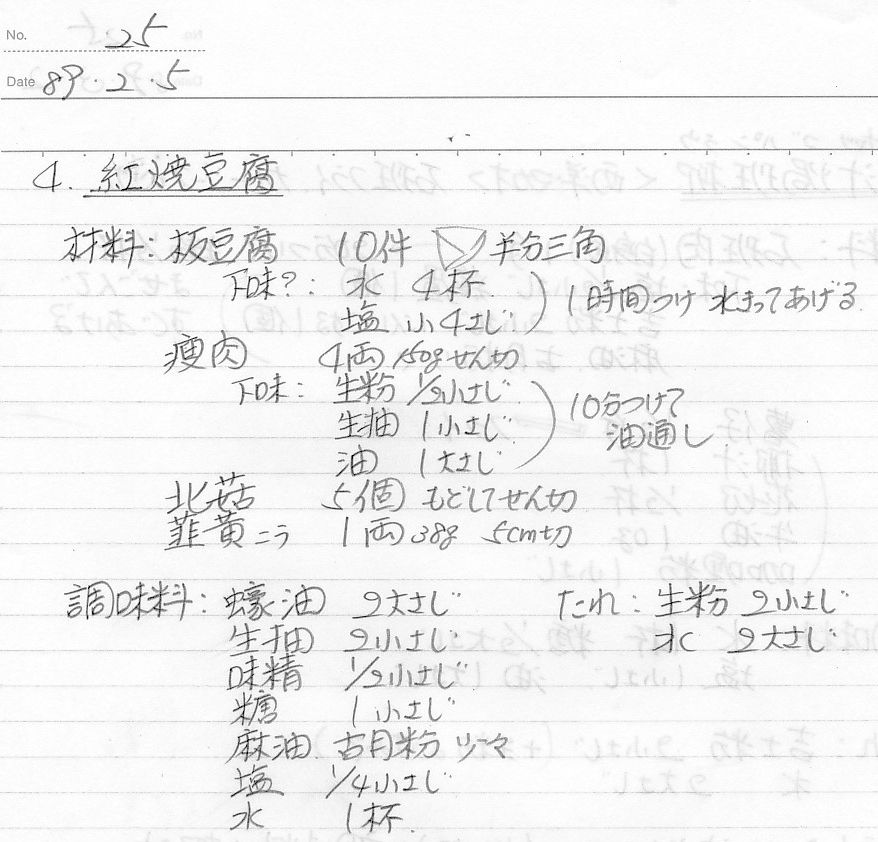 No. 25
Date 89.2.5
4. 紅焼豆腐
材料: 板豆腐 10件 半分三角
下味?: 水 4杯
塩 小4さじ
1時間つけ 水きってあげる
瘦肉 4両 150g せん切
下味: 生粉 1/2小さじ
生抽 1小さじ
油 1大さじ
10分つけて
油通し
北菇 5個 もどしてせん切
韮黄こう 1両 38g 5cm切
調味料: 蠔油 2大さじ
生抽 2小さじ
味精 1/2小さじ
糖 1小さじ
麻油 古月粉 少々
塩 1/4小さじ
水 1杯
たれ: 生粉 2小さじ
水 2大さじ